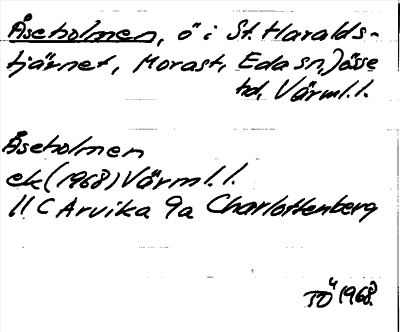 Åseholmen, ö i St. Haralds-
tjärnet, Morast, Eda sn, Jösse
hd, Värml. l.
Åseholmen
ek (1968) Värml. l.
11 C Arvika 9a Charlottenberg
1968